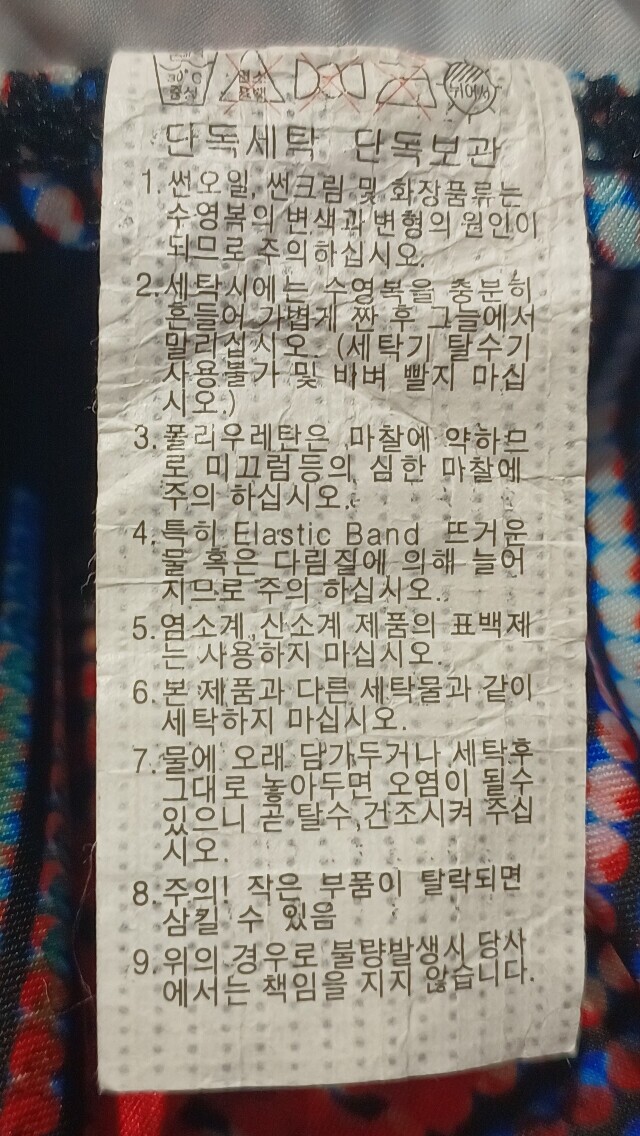 30°C
중성
염소
표백
뉘어서
단독세탁 단독보관
1. 썬오일, 썬크림 및 화장품류는
수영복의 변색과 변형의 원인이
되므로 주의하십시오.
2. 세탁시에는 수영복을 충분히
흔들어 가볍게 짠 후 그늘에서
말리십시오. (세탁기 탈수기
사용불가 및 비벼 빨지 마십
시오.)
3. 폴리우레탄은 마찰에 약하므
로 미끄럼등의 심한 마찰에
주의 하십시오.
4. 특히 Elastic Band 뜨거운
물 혹은 다림질에 의해 늘어
지므로 주의 하십시오.
5. 염소계, 산소계 제품의 표백제
는 사용하지 마십시오.
6. 본 제품과 다른 세탁물과 같이
세탁하지 마십시오.
7. 물에 오래 담가두거나 세탁후
그대로 놓아두면 오염이 될수
있으니 곧 탈수, 건조시켜 주십
시오.
8. 주의! 작은 부품이 탈락되면
삼킬 수 있음
9. 위의 경우로 불량발생시 당사
에서는 책임을 지지 않습니다.